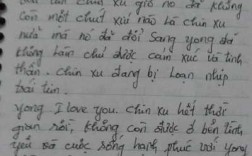 gió nó đã không
còn một chút xíu nào là chin xu
nữa mà nó đã đổi sang yong đã
không làm chủ được cảm xúc và tinh
thần. chin xu đang bị loạn nhịp
trái tim.
yong I love you. chin xu hết thời
gian rồi, không còn được ở bên tình
yêu và cuộc sống hạnh phúc với yong